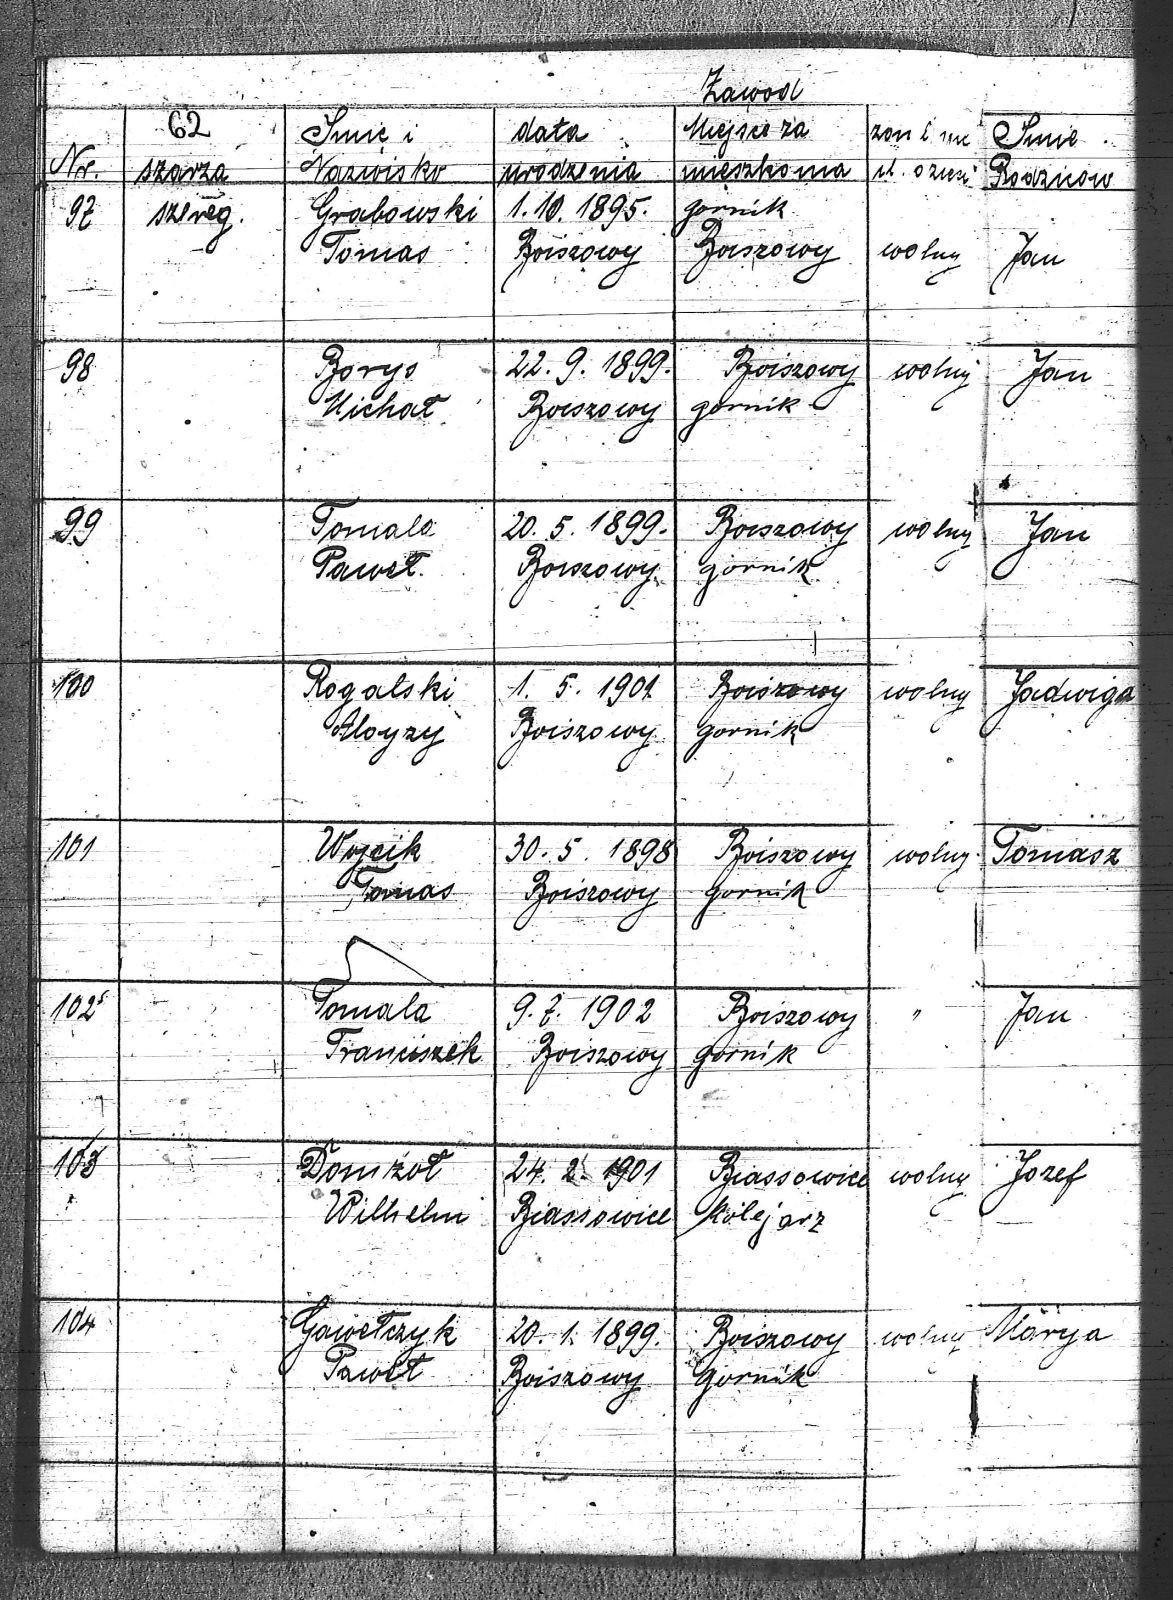 Zawod
62 Imię i data Miejsce za Imie
Nr. szarza Nazwisko urodzenia mieszkania Rodzicow
97 szereg. Grabowski 1.10.1895. gornik
Tomas Boiszowy Boiszowy wolny Jan
98 Borys 22.9.1899. Boiszowy wolny Jan
Michał Boiszowy gornik
99 Tomala 20.5.1899. Boiszowy wolny Jan
Paweł. Boiszowy gornik
100 Rogalski 1.5.1901 Boiszowy wolny Jadwiga
Aloyzy Boiszowy gornik
101 Wojcik 30.5.1898 Boiszowy wolny Tomasz
Tomas Boiszowy Gornik
102 Tomala 9.7.1902 Boiszowy " Jan
Franciszek Boiszowy gornik
103 Domżoł 24.2.1901 Biassowice wolny Jozef
Wilhelm Biassowice Kolejarz
104 Gawełczyk 20.1.1899. Boiszowy wolny Marya
Paweł Boiszowy Gornik